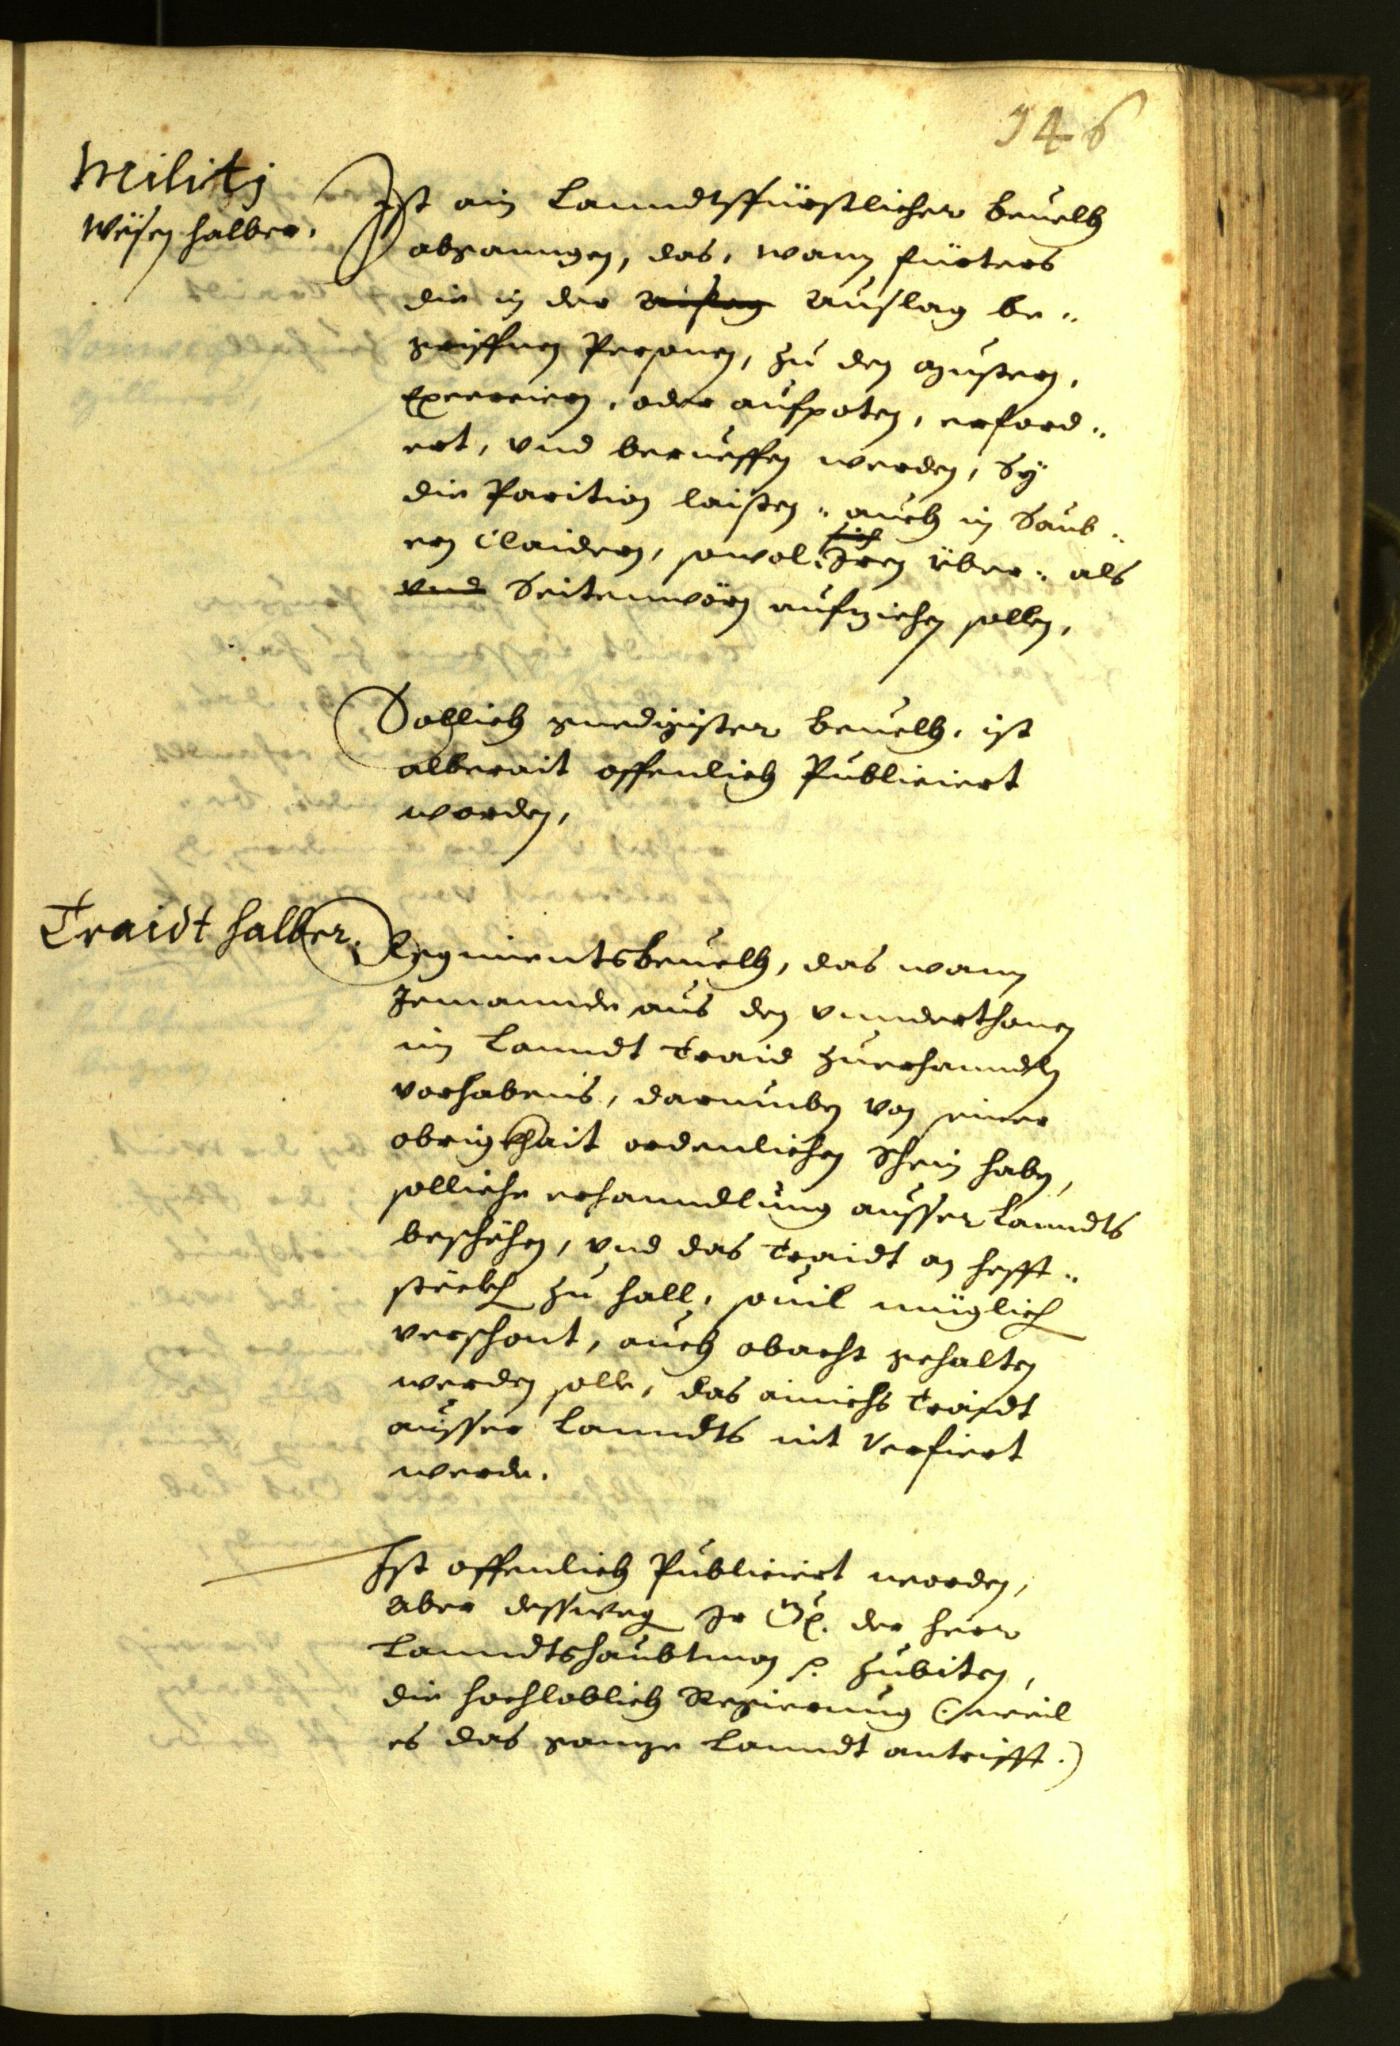 146
Militi
Wesen halber.
Ist ain Lanndtsfürstlicher beuelh
abganngen, das, wann fürters
die in der auslag Auslag be¬
griffnen Personen, zu den Mustern,
Exerciern, oder aufpoten, erford¬
ert, vnd berueffen werden, Sy
die Parition laisten, auch in Saub¬
ern Claidern, sowol Iren über¬ als
sich
vnd Seitenwörn aufziehen sollen,
Sollich gnedigister beuelh, ist
alberait offenlich Publiciert
worden,
Traidt halber.
Regimentsbeuelh, das wann
Jemannde aus den vnnderthonen
im Lanndt Traid zuerhanndln
vorhabens, darumben von seiner
obrigkhait ordenlichen Schein haben,
solliche erhanndlung ausser Lanndts
beschehen, vnd das Traidt an
zu Hall, souil müglich
verschont, auch obacht gehalten
werden solle, das ainichs Traidt
ausser Lanndts nit Verfiert
werde.
Ist offenlich Publiciert worden,
Aber desswegen Ir der Herr
Lanndtshaubtman zubiten,
die hochloblich Regierung (: weil
es das ganze Lanndt antrifft :)